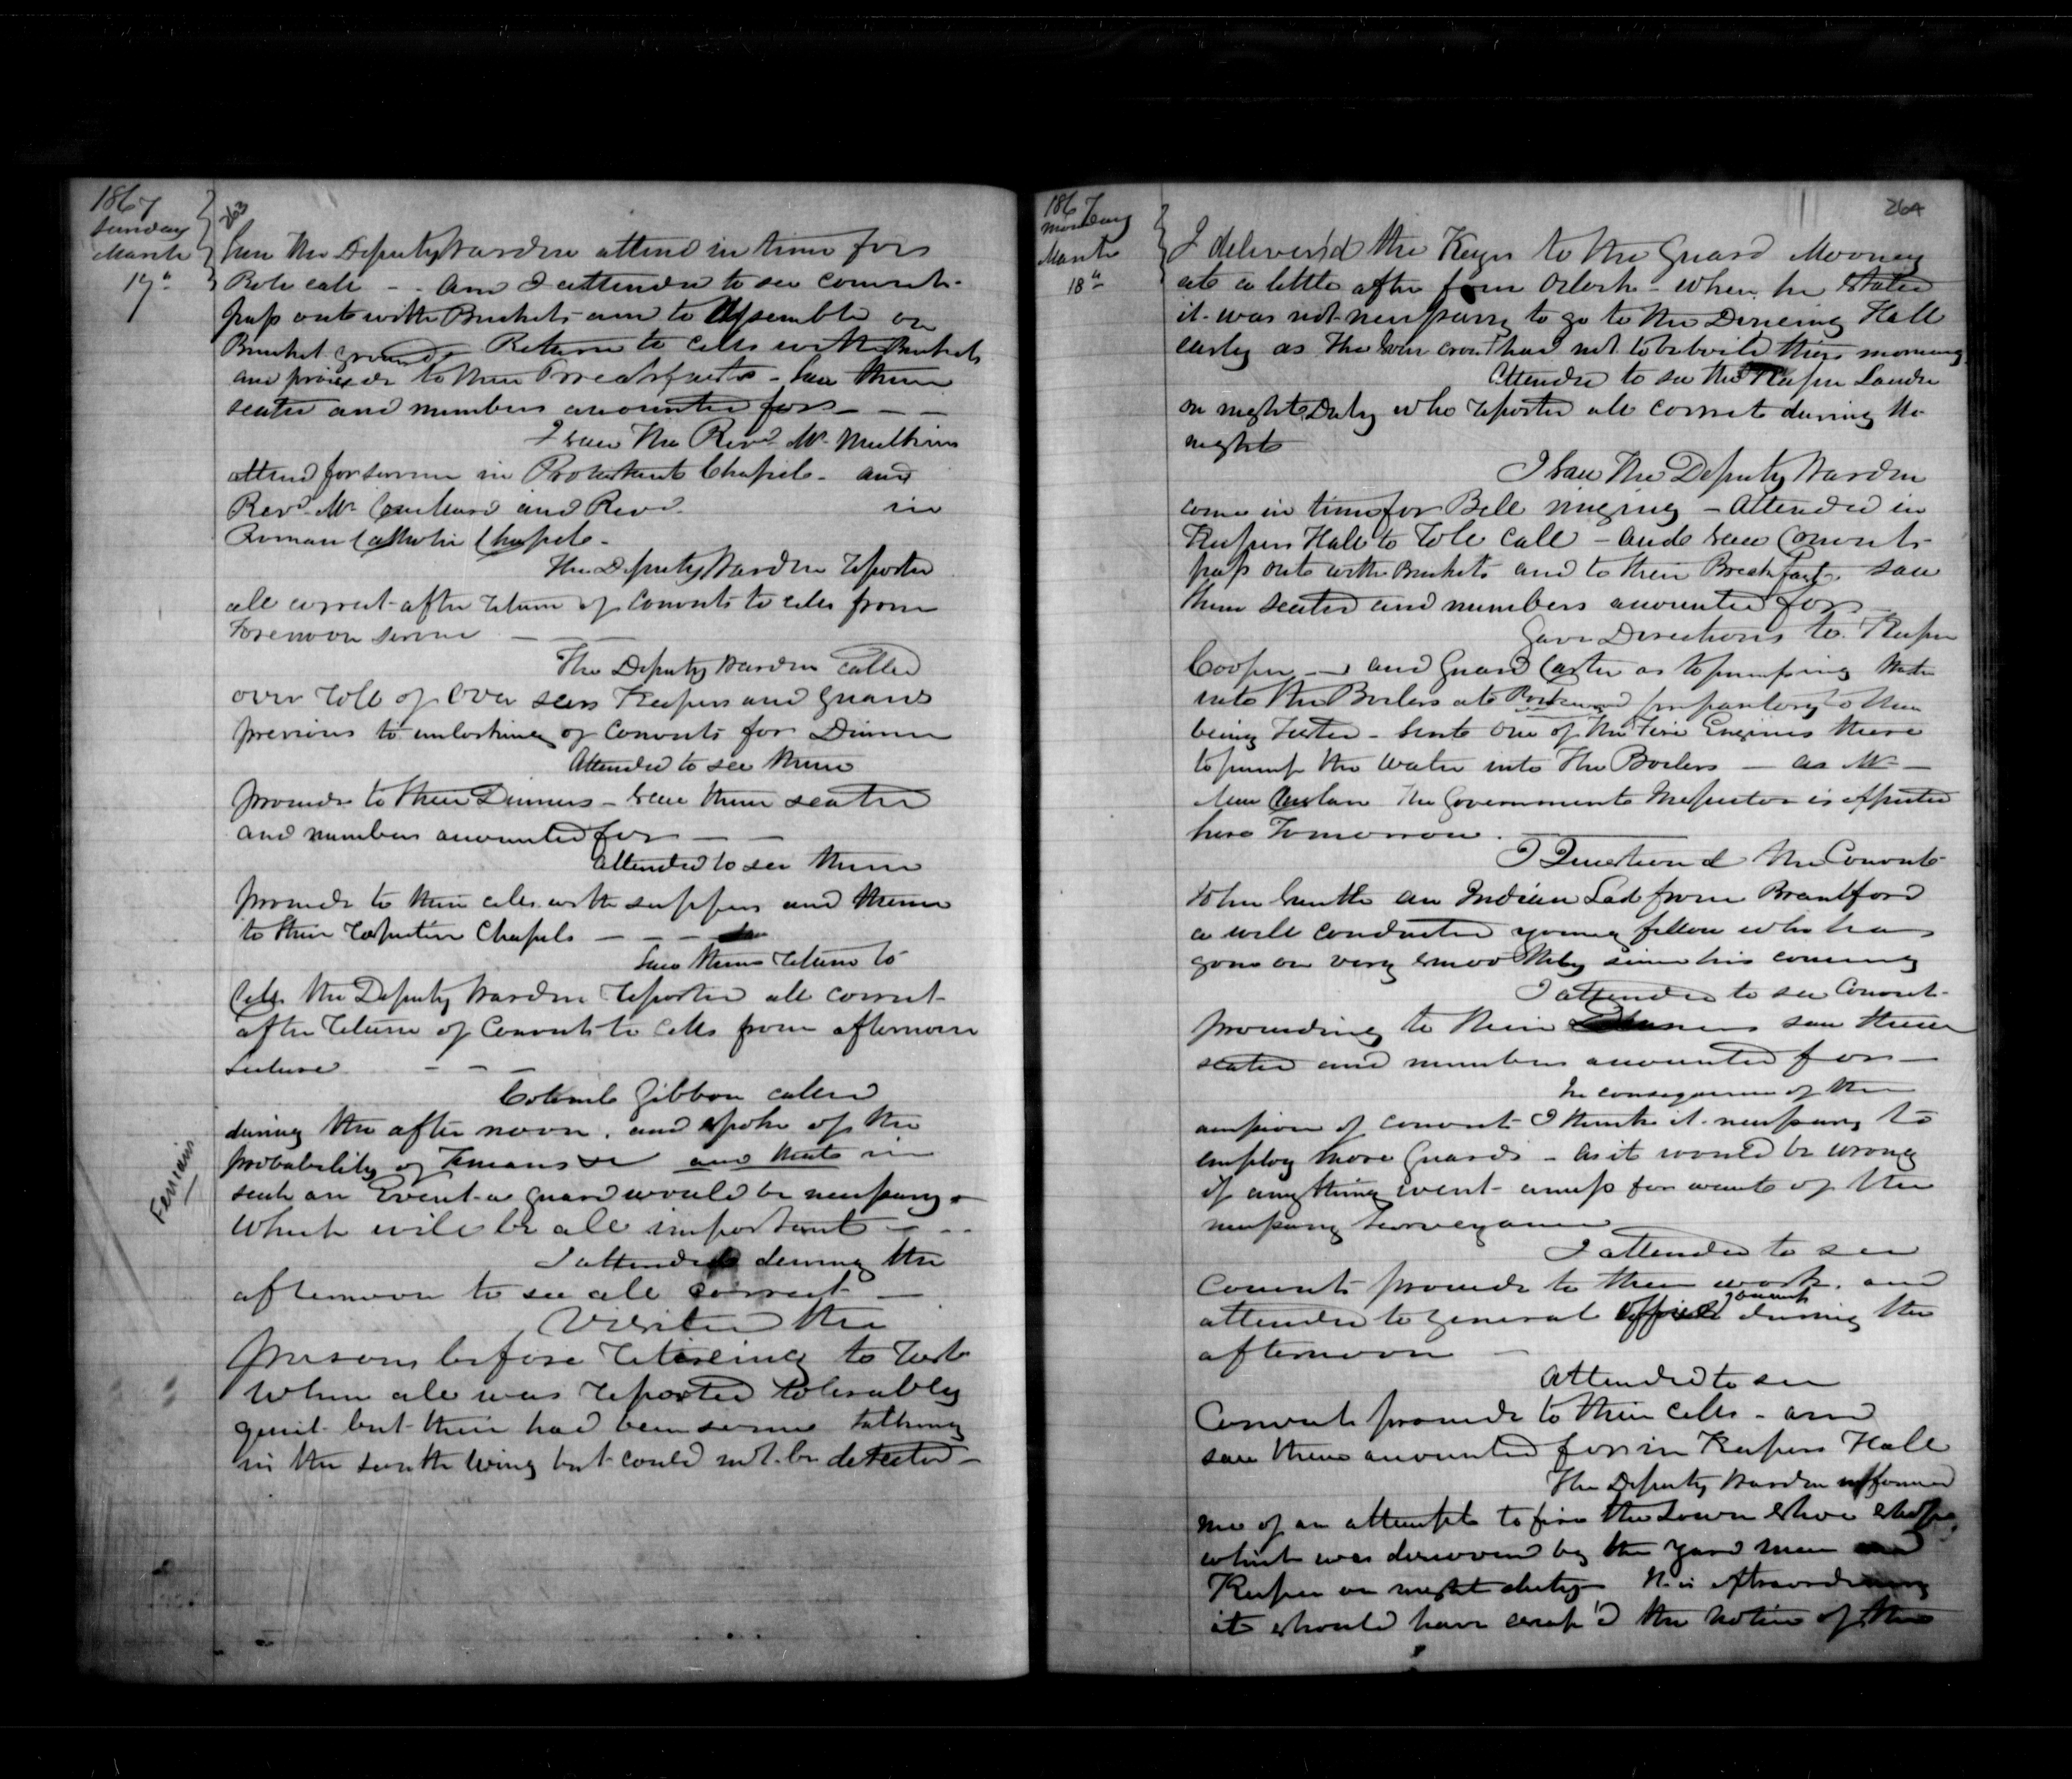 1867
Sunday
March
17"
263
Saw the Deputy Warden attend in time for
Role call - - and I attended to see convicts
pass out with Buckets and to assemble on
Bucket ground. Return to cells with Buckets
and proceed to their Breakfasts - Saw them
seated and numbers accounted for - - -
I saw the Revd. Mr. Mulkins
attend for service in Protestant Chapel - and
Revd. Mr and Revd. in
Roman Catholic Chapel -
The Deputy Warden reported
all correct after return of Convicts to cells from
Forenoon service - -
The Deputy Warden called
over roll of Over seers Keepers and Guards
previous to unlocking of Convicts for Dinner
Attended to see them
proceed to their Dinners - saw them seated
and numbers accounted for - -
Attended to see them
proceed to their cells with suppers and thence
to their respective Chapels - - -
Saw them return to
Cells the Deputy Warden reported all correct
after return of Convicts to Cells from afternoon
Lecture - - -
Colonel Gibbon called
during the after noon, and spoke of the
probability of Fenians and that in
such an Event a guard would be necessary -
Which will be all important - - -
Fenians
I attended during the
afternoon to see all correct -
Visited the
prisons before retireing to rest
When all was reported tolerably
quiet but their had been some talking
in the south wing but could not be detected -
1867
Monday
March
18"
264
I deliver'd the Keys to the Guard Mooney
at a little after four Oclock - when he stated
it was not necessary to go to the Dineing Hall
early as the had not to be boild this morning
Attended to see the Keeper
on night Duty who reported all correct during the
night
I saw the Deputy Warden
come in time for Bell ringing - Attended in
Keepers Hall to role call - and saw Convicts
pass out with Buckets and to their Breakfast - saw
them seated and numbers accounted for -
Gave Directions to Keeper
Cooper - and Guard Carter as to pumping water
into the Boilers at preparatory to their
being Tested - sent one of the Fire Engines there
to pump the water into the Boilers - as Mr -
The Government Inspector is expected
here Tomorrow.
I Questiond the Convict
John Smith an Indian Lad from Brantford
a well conducted young fellow who has
gone on very smoothly since his coming
I attended to see Convicts
proceeding to their Dinners saw them
seated and numbers accounted for -
In consequence of the
of convicts I think it necessary to
employ more Guards - as it would be wrong
if anything went amiss for want of the
necessary surveyance
I attended to see
Convicts proceed to their work, and
attended to general during the
afternoon -
Attended to see
Convicts proceed to their cells - and
saw them accounted for in Keepers Hall
The Deputy Warden informed
me of an attempt to fire the shoe shop
which was discovered by the yard man and
Keeper on night duty - It is extraordinary
it should have escap'd the notice of the